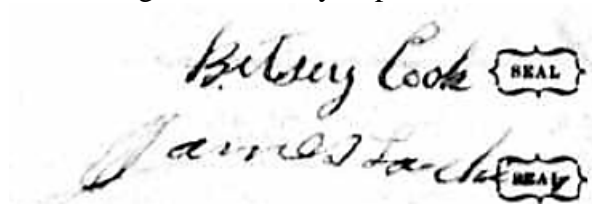 Betsey Cook SEAL
James SEAL